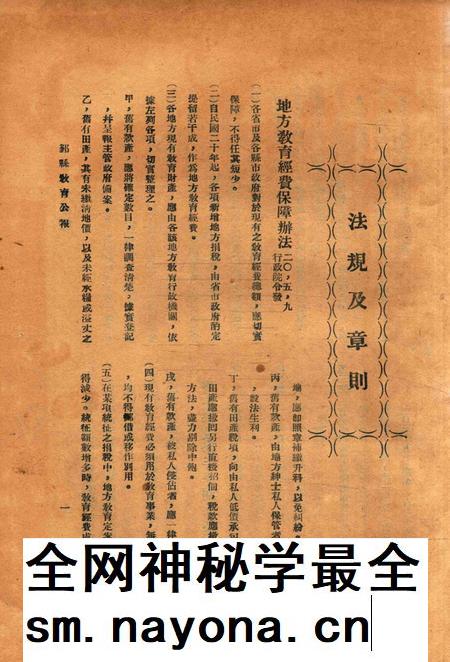 法規及章則
地方敎育經費保障辦法 二〇,五,九 行政院令發
(一)各省市及各縣市政府對於現有之敎育經費總額,應切實
保障,不得任其短少。
(二)自民國二十年起,各項新增地方捐稅,由省市政府酌定
提留若干成,作爲地方敎育經費。
(三)各地方現有敎育財產,應由各該地方敎育行政機關,依
據左列各項,切實整理之。
甲,舊有款產,應將確定數目,一律調查清楚,據實登記
,幷呈報主管政府備案。
乙,舊有田產,其有未繳清地價,以及未經水繪或浸丈之
地,應卽照章補繳升科,以免糾紛。
丙,舊有款產,由地方紳士私人保管者
,設法生利。
丁,舊有田產稅項,向由私人低價承
田產應撥回另行直接招佃,稅款應
方法,盡力剔除中飽。
戊,舊有款產,被私人侵佔者,應一律
(四)現有敎育經費必須用於敎育事業,無
,均不得挪借或移作別用。
(五)在某項統征之捐稅中,地方敎育定案
得減少。統征額數增多時,敎育經費
郫縣敎育公報
一
全网神秘学最全
sm.nayona.cn